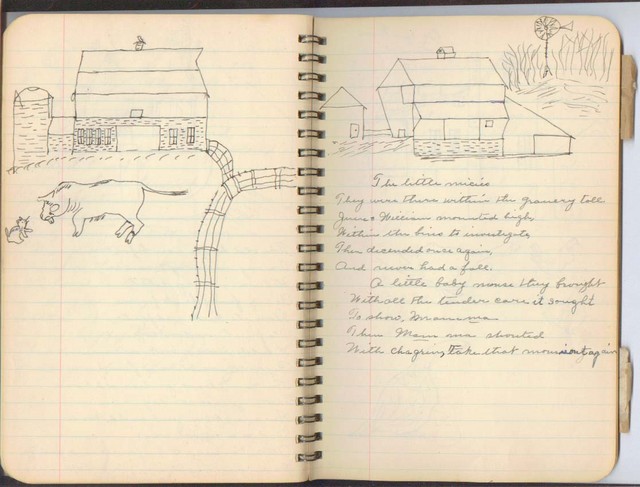 The little micies
They were there within the granery tall
June & William mounted high,
Within the bins to investigate
Then decended once again,
And never had a fall.
A little baby mouse they brought
With all the tender care it sought
To show Mamama
Then Mam ma shouted
With chagrin, take that mousie out again